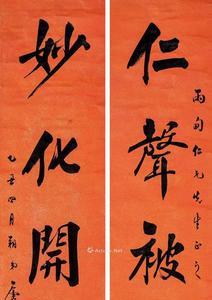 雨甸仁兄先生正之
仁聲被
妙化開
乙丑四月